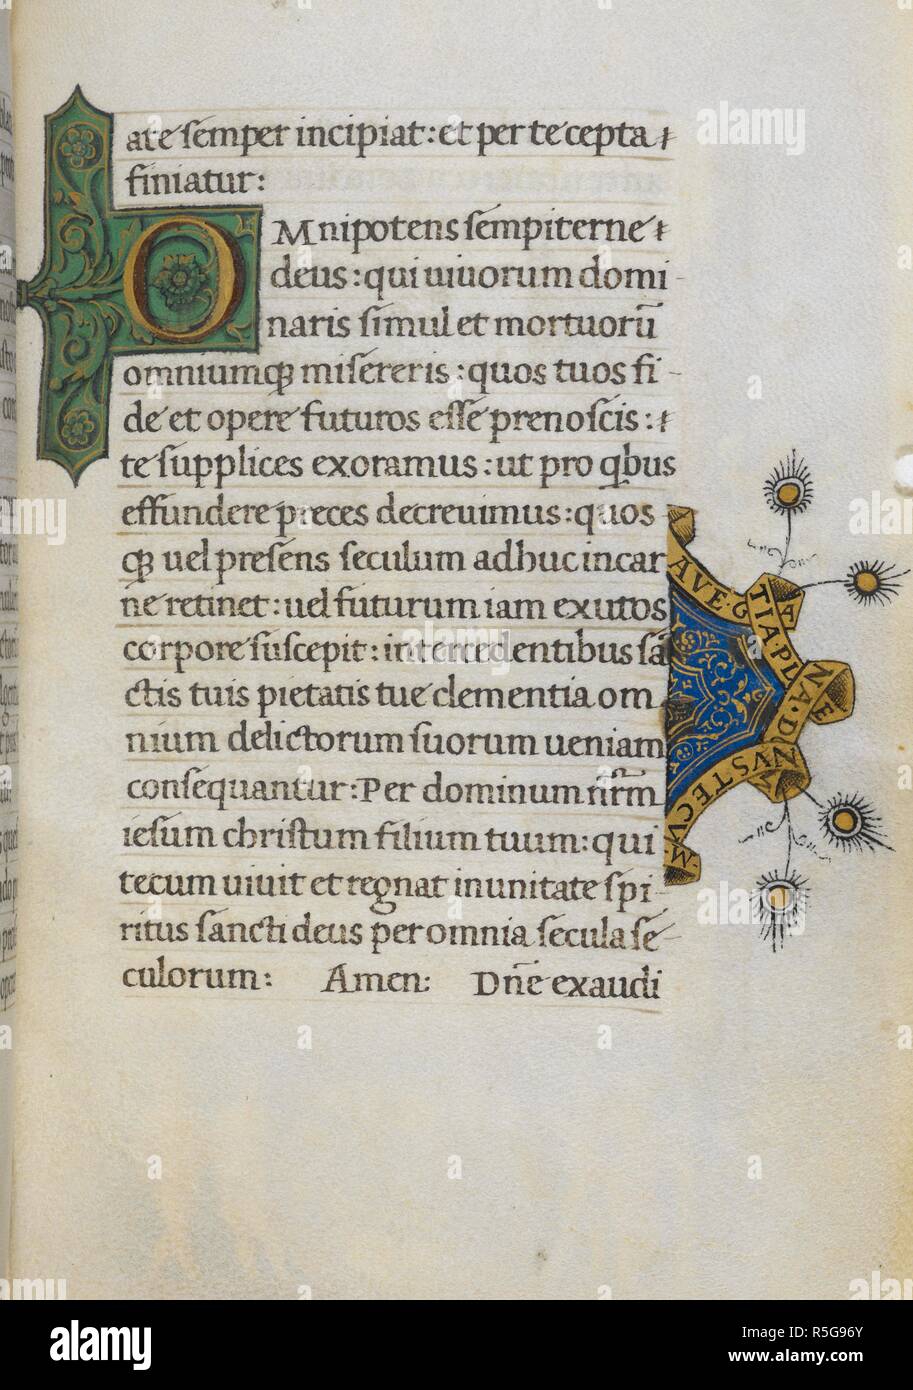 ate semper incipiat: et per te cepta
finiatur:
OMnipotens sempiterne
deus: qui uiuorum domi
naris simul et mortuorū
omniumqꝫ misereris: quos tuos fi-
de et opere futuros esse prenoscis:
te supplices exoramus: ut pro qbus
effundere preces decreuimus: quos
qꝫ uel presens seculum adhuc in car
ne retinet: uel futurum iam exutos
corpore suscepit: intercedentibus sā
ctis tuis pietatis tue clementia om
nium delictorum suorum ueniam
consequantur: Per dominum nr̄m
iesum christum filium tuum: qui
tecum uiuit et regnat in unitate spi-
ritus sancti deus per omnia secula se-
culorum: Amen: Dn̄e exaudi
AVE·G
A
TIA·PL
E
NA·D
NVSTECV
M·
alamy
Image ID: R5G96Y
www.alamy.com